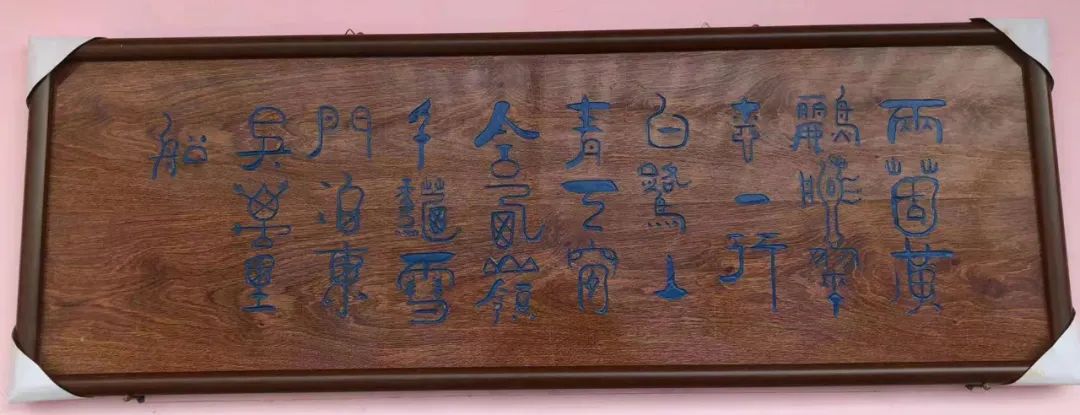 兩箇黃
鸝鳴翠
柳一行
白鷺上
青天窗
含西嶺
千秋雪
門泊東
吳萬里
船